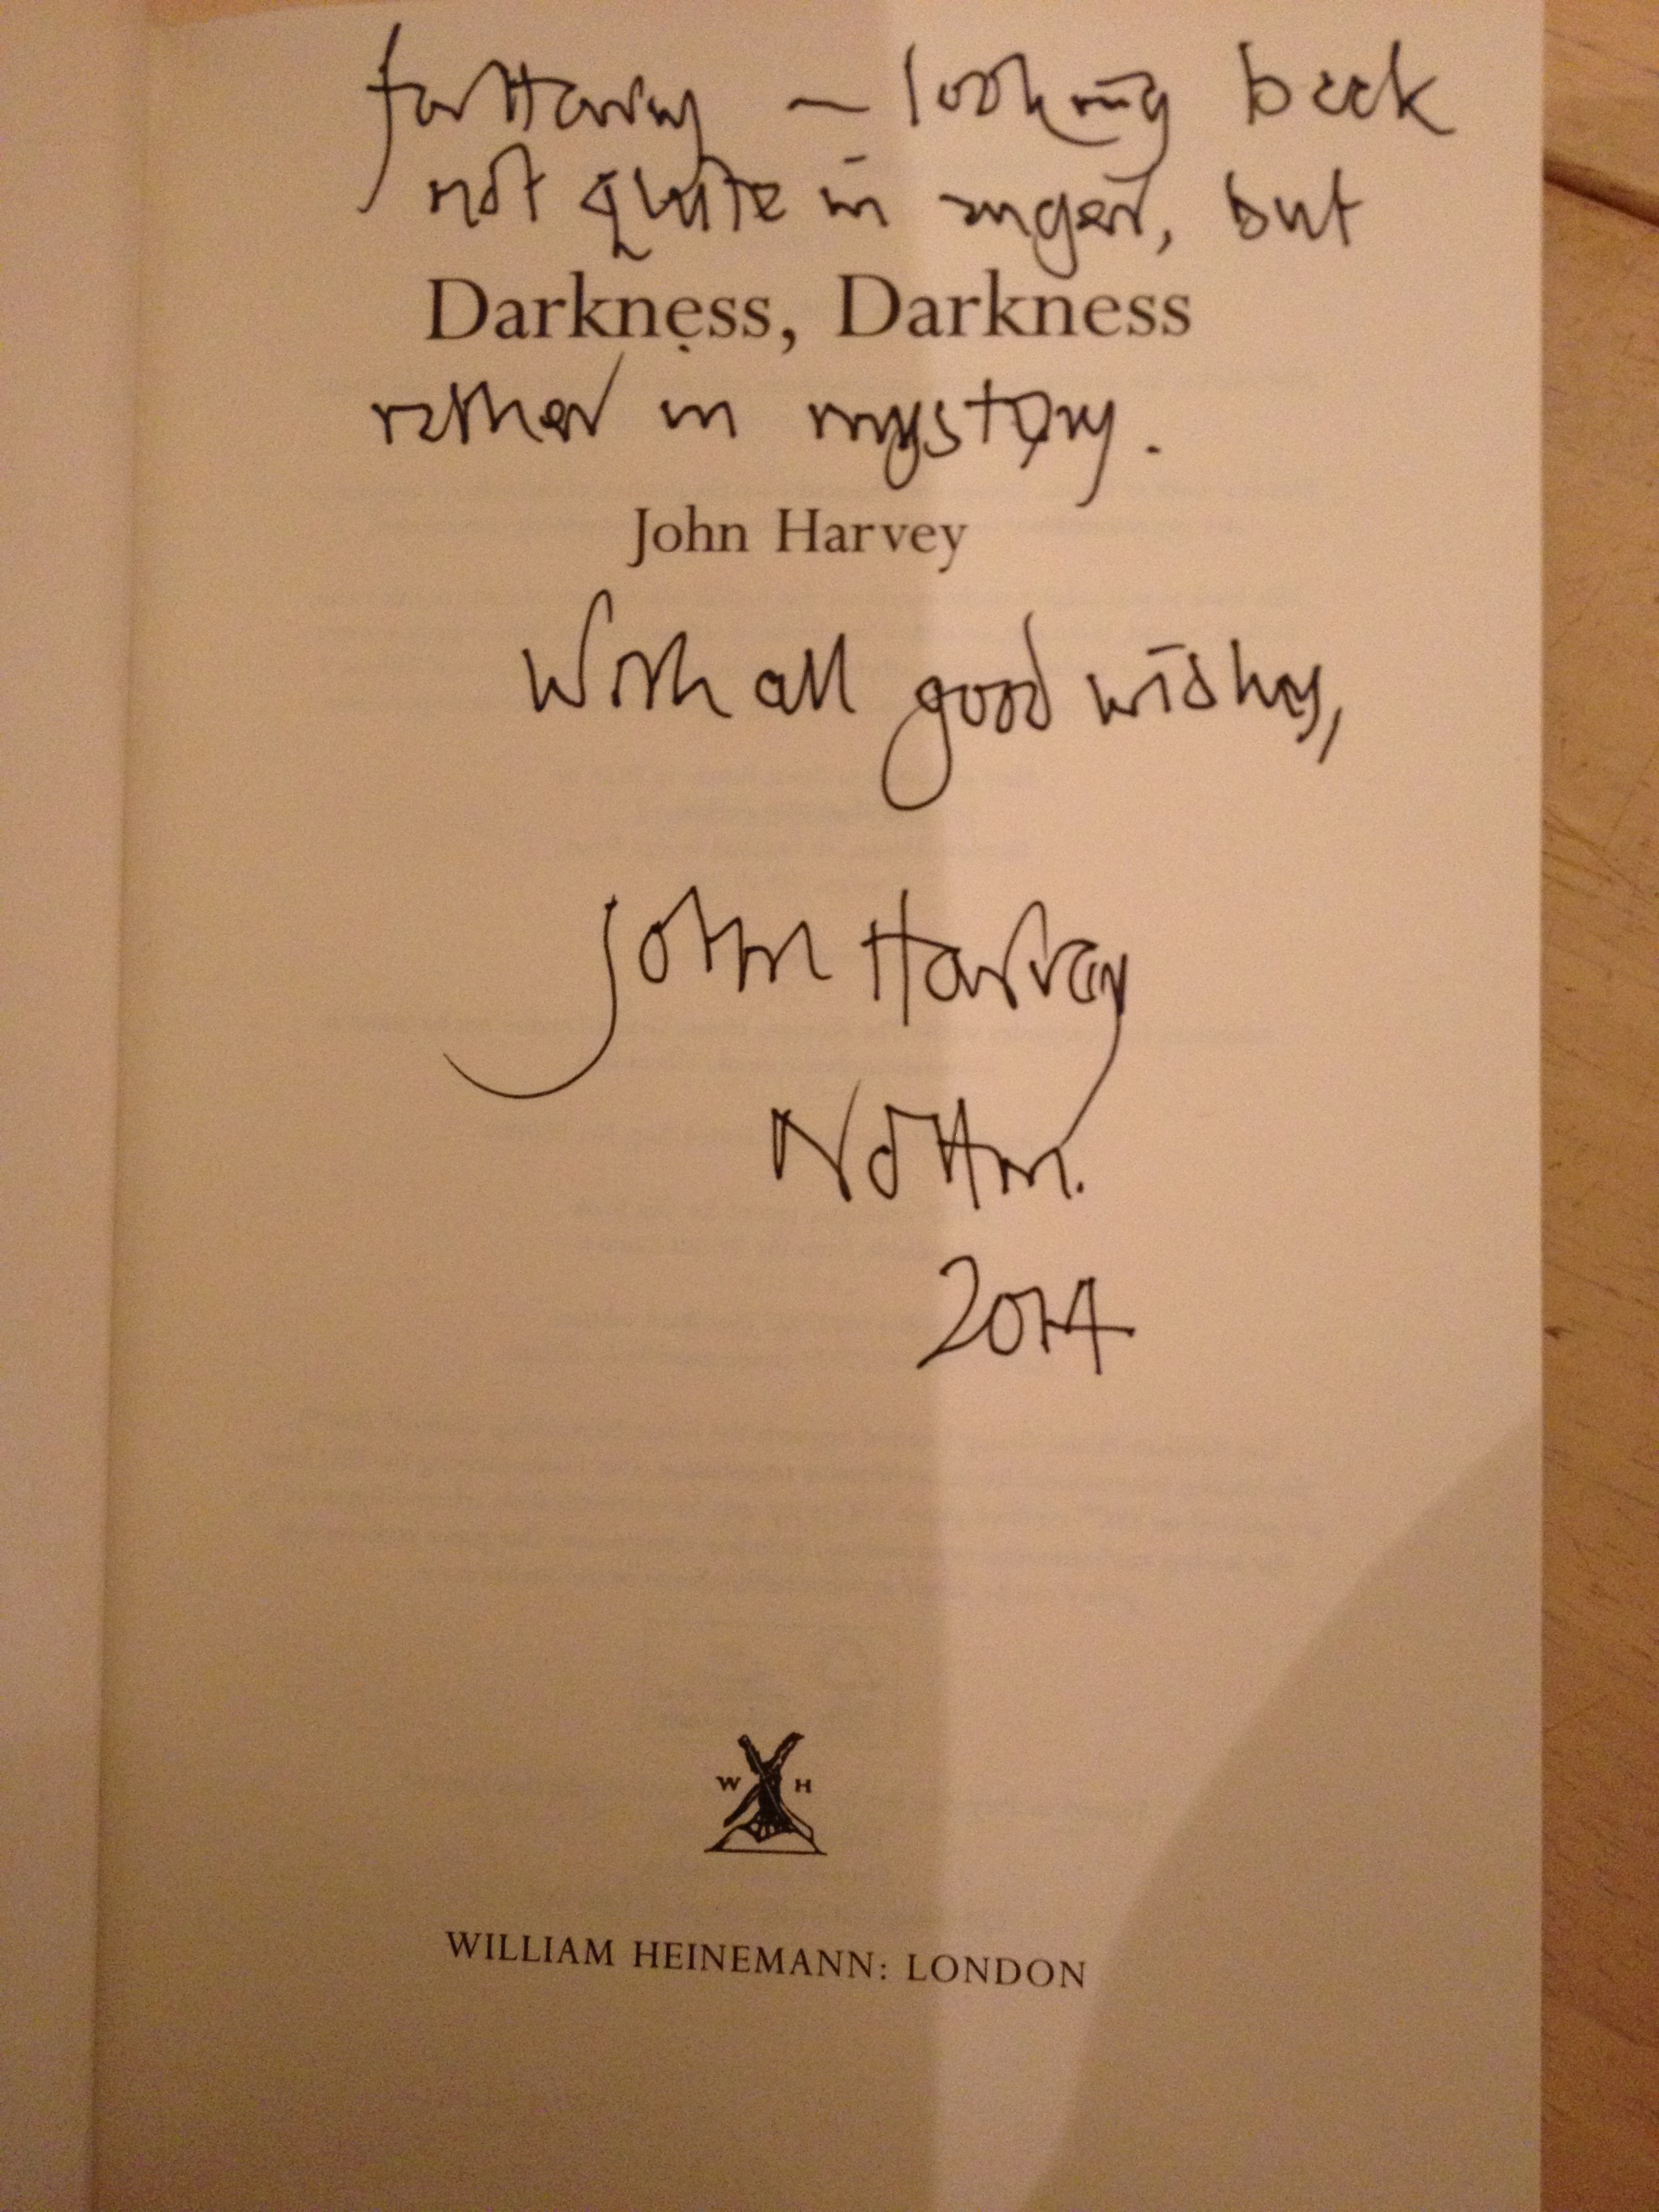 for Harry — looking back
not quite in anger, but
Darkness, Darkness
rather in mystery.
John Harvey
With all good wishes,
John Harvey
Nottm.
2014
W H
WILLIAM HEINEMANN: LONDON